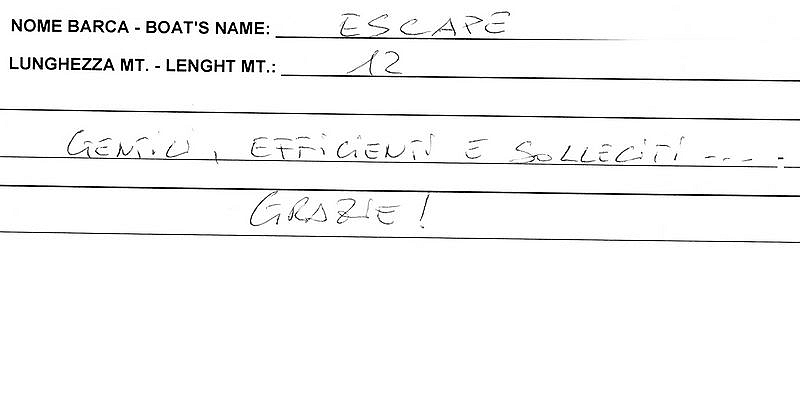 NOME BARCA - BOAT'S NAME: ESCAPE
LUNGHEZZA MT. - LENGHT MT.: 12
GENTILI, EFFICIENTI E SOLLECITI ----
GRAZIE!